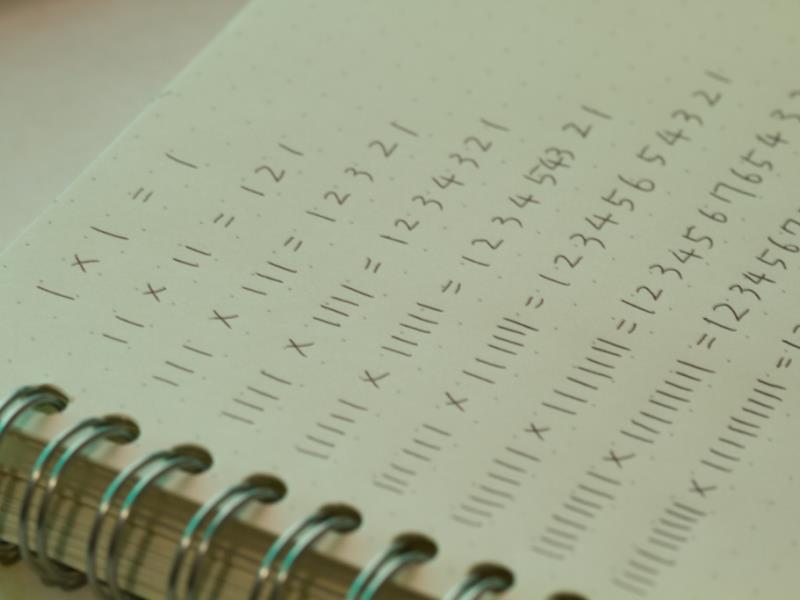 1 x 1 = 1
11 x 11 = 121
111 x 111 = 12321
1111 x 1111 = 1234321
11111 x 11111 = 123454321
111111 x 111111 = 12345654321
1111111 x 1111111 = 123456765432
11111111 x 11111111 = 1234567
111111111 x 111111111 = 12